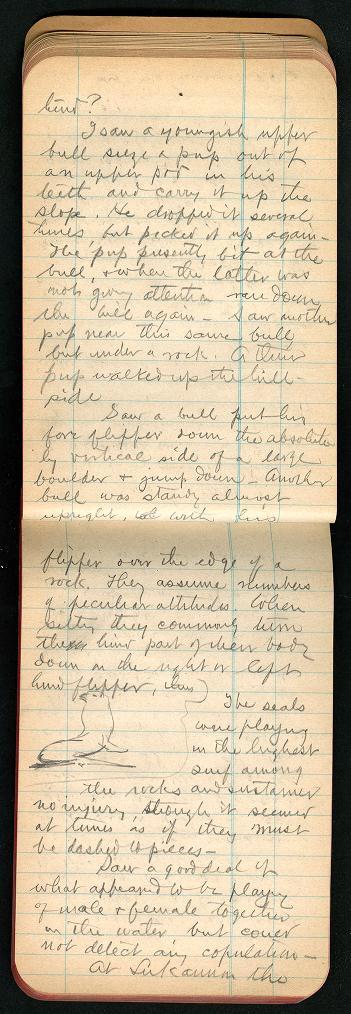 kind?
I saw a youngish upper
bull seize a pup out of
an upper pod in his
teeth and carry it up the
slope. He dropped it several
times but picked it up again -
The pup presently bit at the
bull, & when the latter was
not giving attention ran down
the hill again - Saw another
pup near this same bull
but under a rock. A third
pup walked up the hill-
side
Saw a bull put his
fore flipper down the absolute
ly vertical side of a large
boulder & jump down - Another
bull was standg almost
upright, with his
flipper over the edge of a
rock. They assume numbers
of peculiar attitudes. When
sitting they commonly turn
the hind part of their body
down on the right or left
hind flipper, thus)
The seals
were playing
in the highest
surf among
the rocks and sustained
no injury, though it seemed
at times as if they must
be dashed to pieces -
Saw a good deal of
what appeared to be playing
of male & female together
in the water but could
not detect any copulation -
At Lukannon the